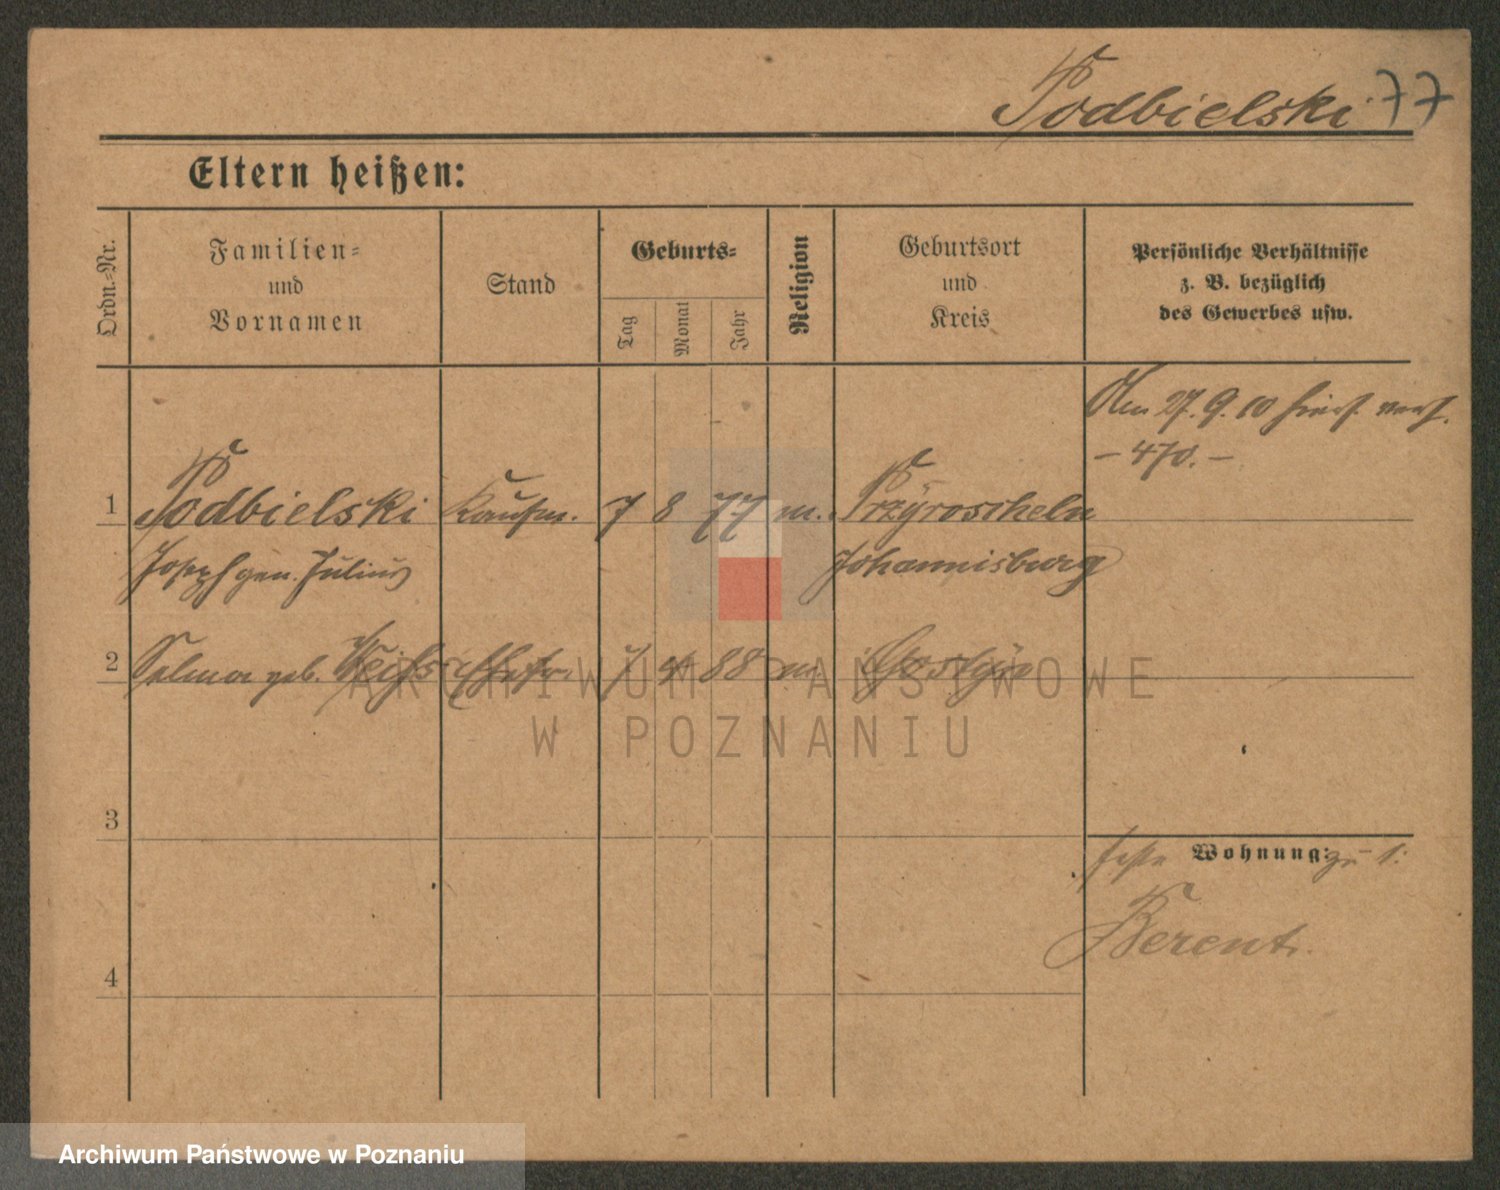 Podbielski 77
Eltern heißen:
Ordn.-Nr.
Familien-
und
Vornamen
Stand
Geburts-
Tag
Monat
Jahr
Religion
Geburtsort
und
Kreis
Persönliche Verhältnisse
z. B. bezüglich
des Gewerbes usw.
Am 27. 9. 10 hiers.
– 470. –
1 Podbielski Kaufm. 7 8 77 m. Przyroscheln
Joseph gen. Julius Johannisburg
2 Selma geb. Ehefr. 7 4 88 m. Gostyn
3
feste Wohnung: zu 1:
Berent.
4
ARCHIWUM PAŃSTWOWE
W POZNANIU
Archiwum Państwowe w Poznaniu